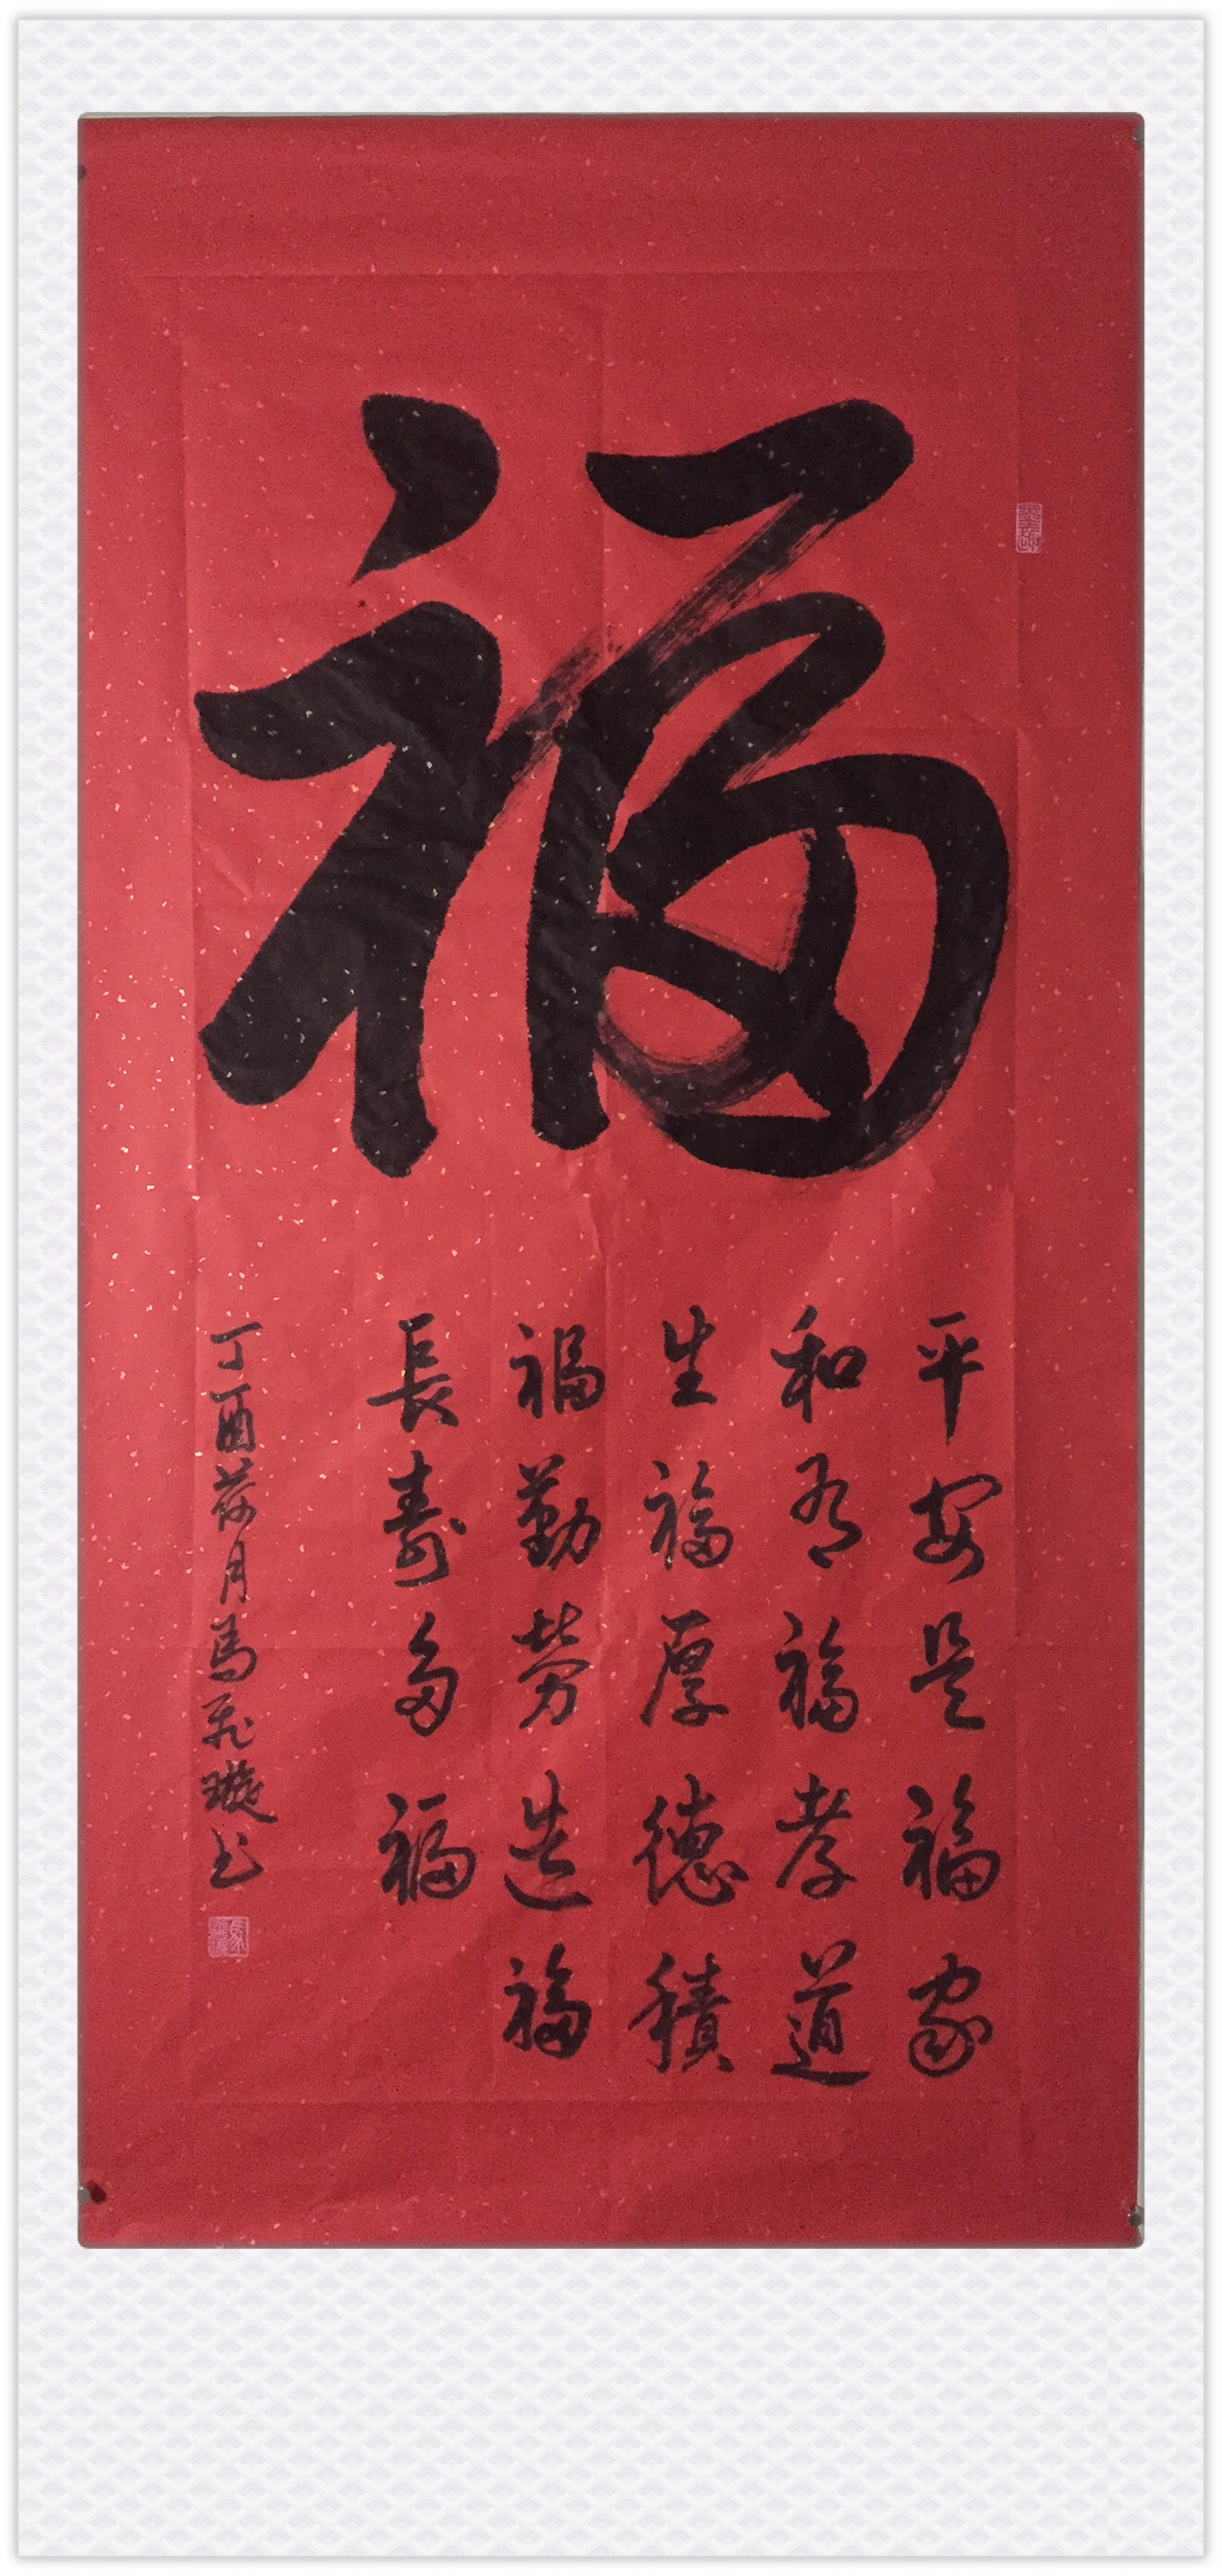 福
平安是福家
和为福孝道
生福厚德積
福勤劳造福
長寿多福
丁酉荷月馬飛璇书